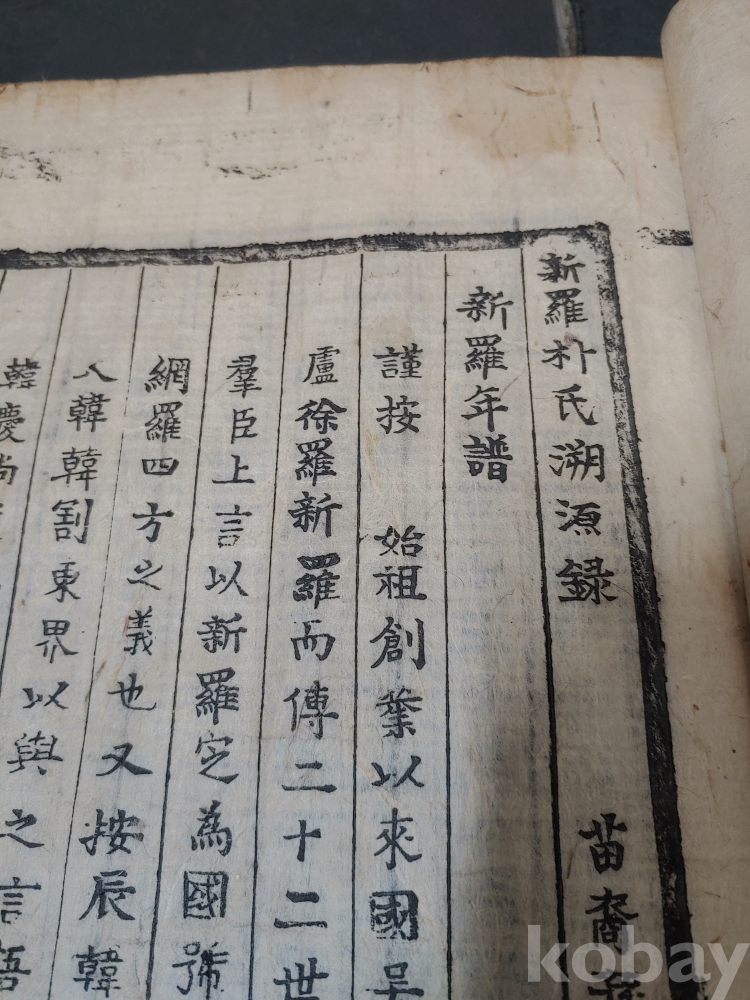 新羅朴氏溯源録 苗裔
新羅年譜
謹按 始祖創業以來國
盧徐羅新羅而傳二十二世
羣臣上言以新羅定為國號
網羅四方之義也又按辰韓
八韓韓割東界以與之言語
韓慶尚
kobay